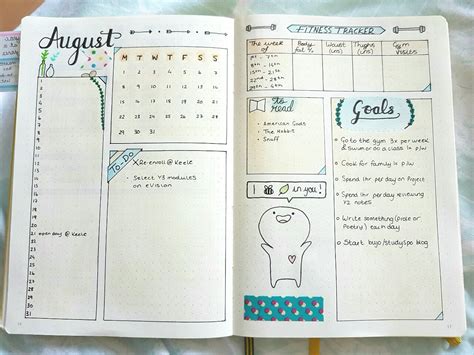 August
M T W T F S S
1 2 3 4 5 6 7
8 9 10 11 12 13 14
15 16 17 18 19 20 21
22 23 24 25 26 27 28
29 30 31
1
2
3
4
5
6
7
8
9
10
11
12
13
14
15
16
17
18
19
20
21 open day @ Keele
22
23
24
25
26
27
28
29
30
31
To-Do
X Re-enroll @ Keele
• Select Y3 modules
on eVision
FITNESS TRACKER
The week of
Body fat %
Waist (ins)
Thighs (ins)
Gym visits
1st - 7th
8th - 14th
15th - 21st
22nd - 28th
29th - 04th
to read
• American Gods
• The Hobbit
• Snuff
I in you!
Goals
Go to the gym 3x per week
& swim or do a class 1x p/w
Cook for family 1x p/w
Spend 1hr per day on Project
Spend 1hr per day reviewing
Y2 notes
Write something (prose or
Poetry) each day
Start bujo/studyspo blog